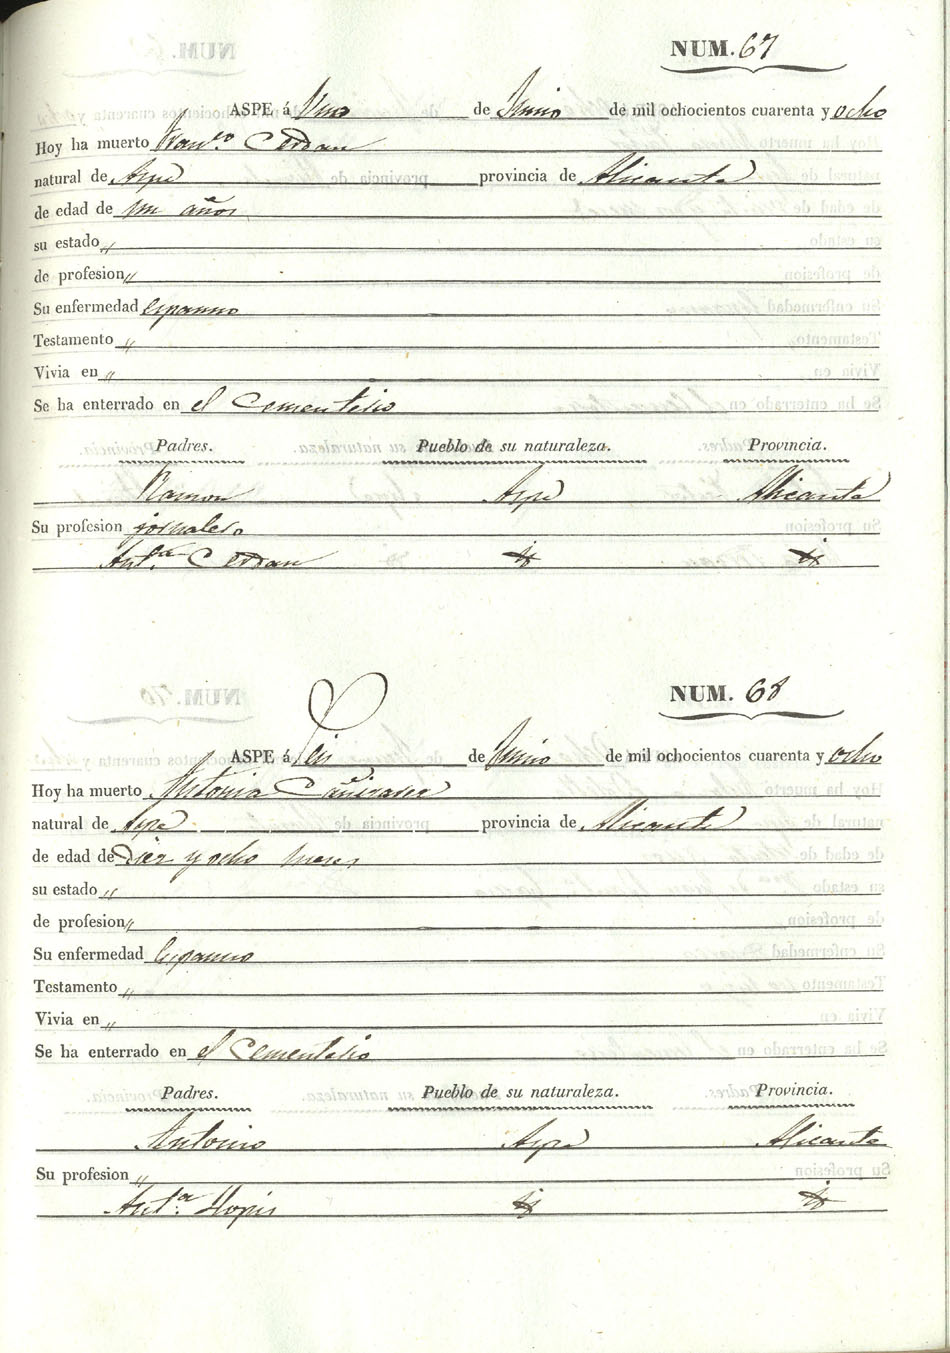 NUM. 67
ASPE á Uno de Junio de mil ochocientos cuarenta y ocho
Hoy ha muerto Fran.co Cerdan
natural de Aspe provincia de Alicante
de edad de un años
su estado "
de profesion "
Su enfermedad espasmo
Testamento "
Vivia en "
Se ha enterrado en el Cementerio
Padres. Pueblo de su naturaleza. Provincia.
Ramon Aspe Alicante
Su profesion jornalero
Ant.a Cerdan id id
NUM. 68
ASPE á Seis de Junio de mil ochocientos cuarenta y ocho
Hoy ha muerto Antonia Cañizares
natural de Aspe provincia de Alicante
de edad de Diez y ocho meses
su estado "
de profesion "
Su enfermedad Espasmo
Testamento "
Vivia en "
Se ha enterrado en el Cementerio
Padres. Pueblo de su naturaleza. Provincia.
Antonio Aspe Alicante
Su profesion "
Ant.a Llopis id id